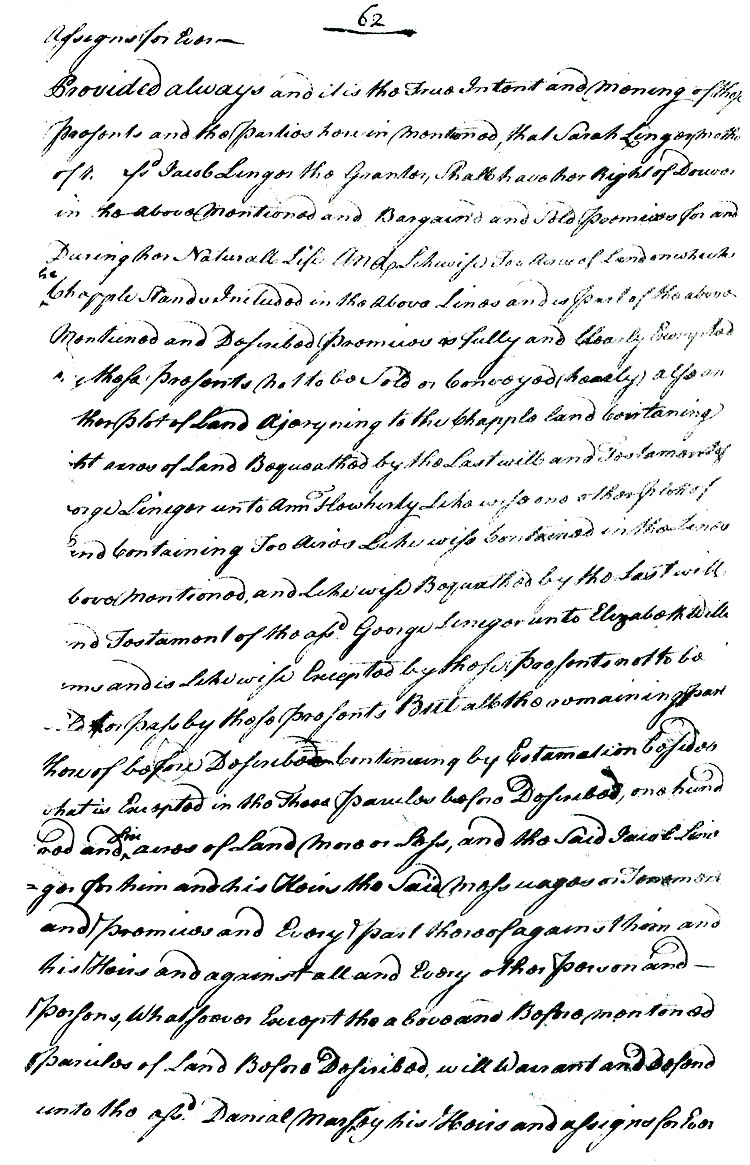 62
Assigns for Ever—
Provided always and it is the True Intent and Mening of these
Presents and the Parties here in Mentioned, that Sarah Linger Moth
of ye sd Jacob Linger the Granter, Shall have her Right of Dower
in he above Mentioned and Bargain'd and Sold Premises for and
During her Naturall Life And Likewise Too Acres of Land on which
the
Chapple Stands Included in the Above Lines and is Part of the above
Mentioned and Described Premices is fully and Clearly Excepted
these Presents not to be Sold or Conveyed (hearly) also an
ther Plot of Land Ajoryning to the Chapple land Contaning
ht acres of Land Bequeathed by the Last will and Testament of
orge Lineger unto Ann Flewherty Like wise one other Plott of
and Containing Too Acres Like wise Contained in the Lines
bove Mentioned, and Like wise Bequathed by the Last will
nd Testament of the afsd George Lineger unto Elizabeth Willi
ms and is Like wise Excepted by these Presents not to be
or Pass by these Presents But all the remaining Part
there of before Described Continuing by Estamation besides
what is Excepted in the Three Parcules before Described, one hund
red and five acres of Land More or Less, and the Said Jacob Line
=ger for him and his Heirs the Said Messuages or Tenement
and Premices and Every Part thereof against him and
his Heirs and against all and Every other Person and—
Persons, Whatsoever Except the above and Before mentoned
Parcules of Land Before Described, will Warrant and Defend
unto the afsd Danial Massey his Heirs and assigns for Ever